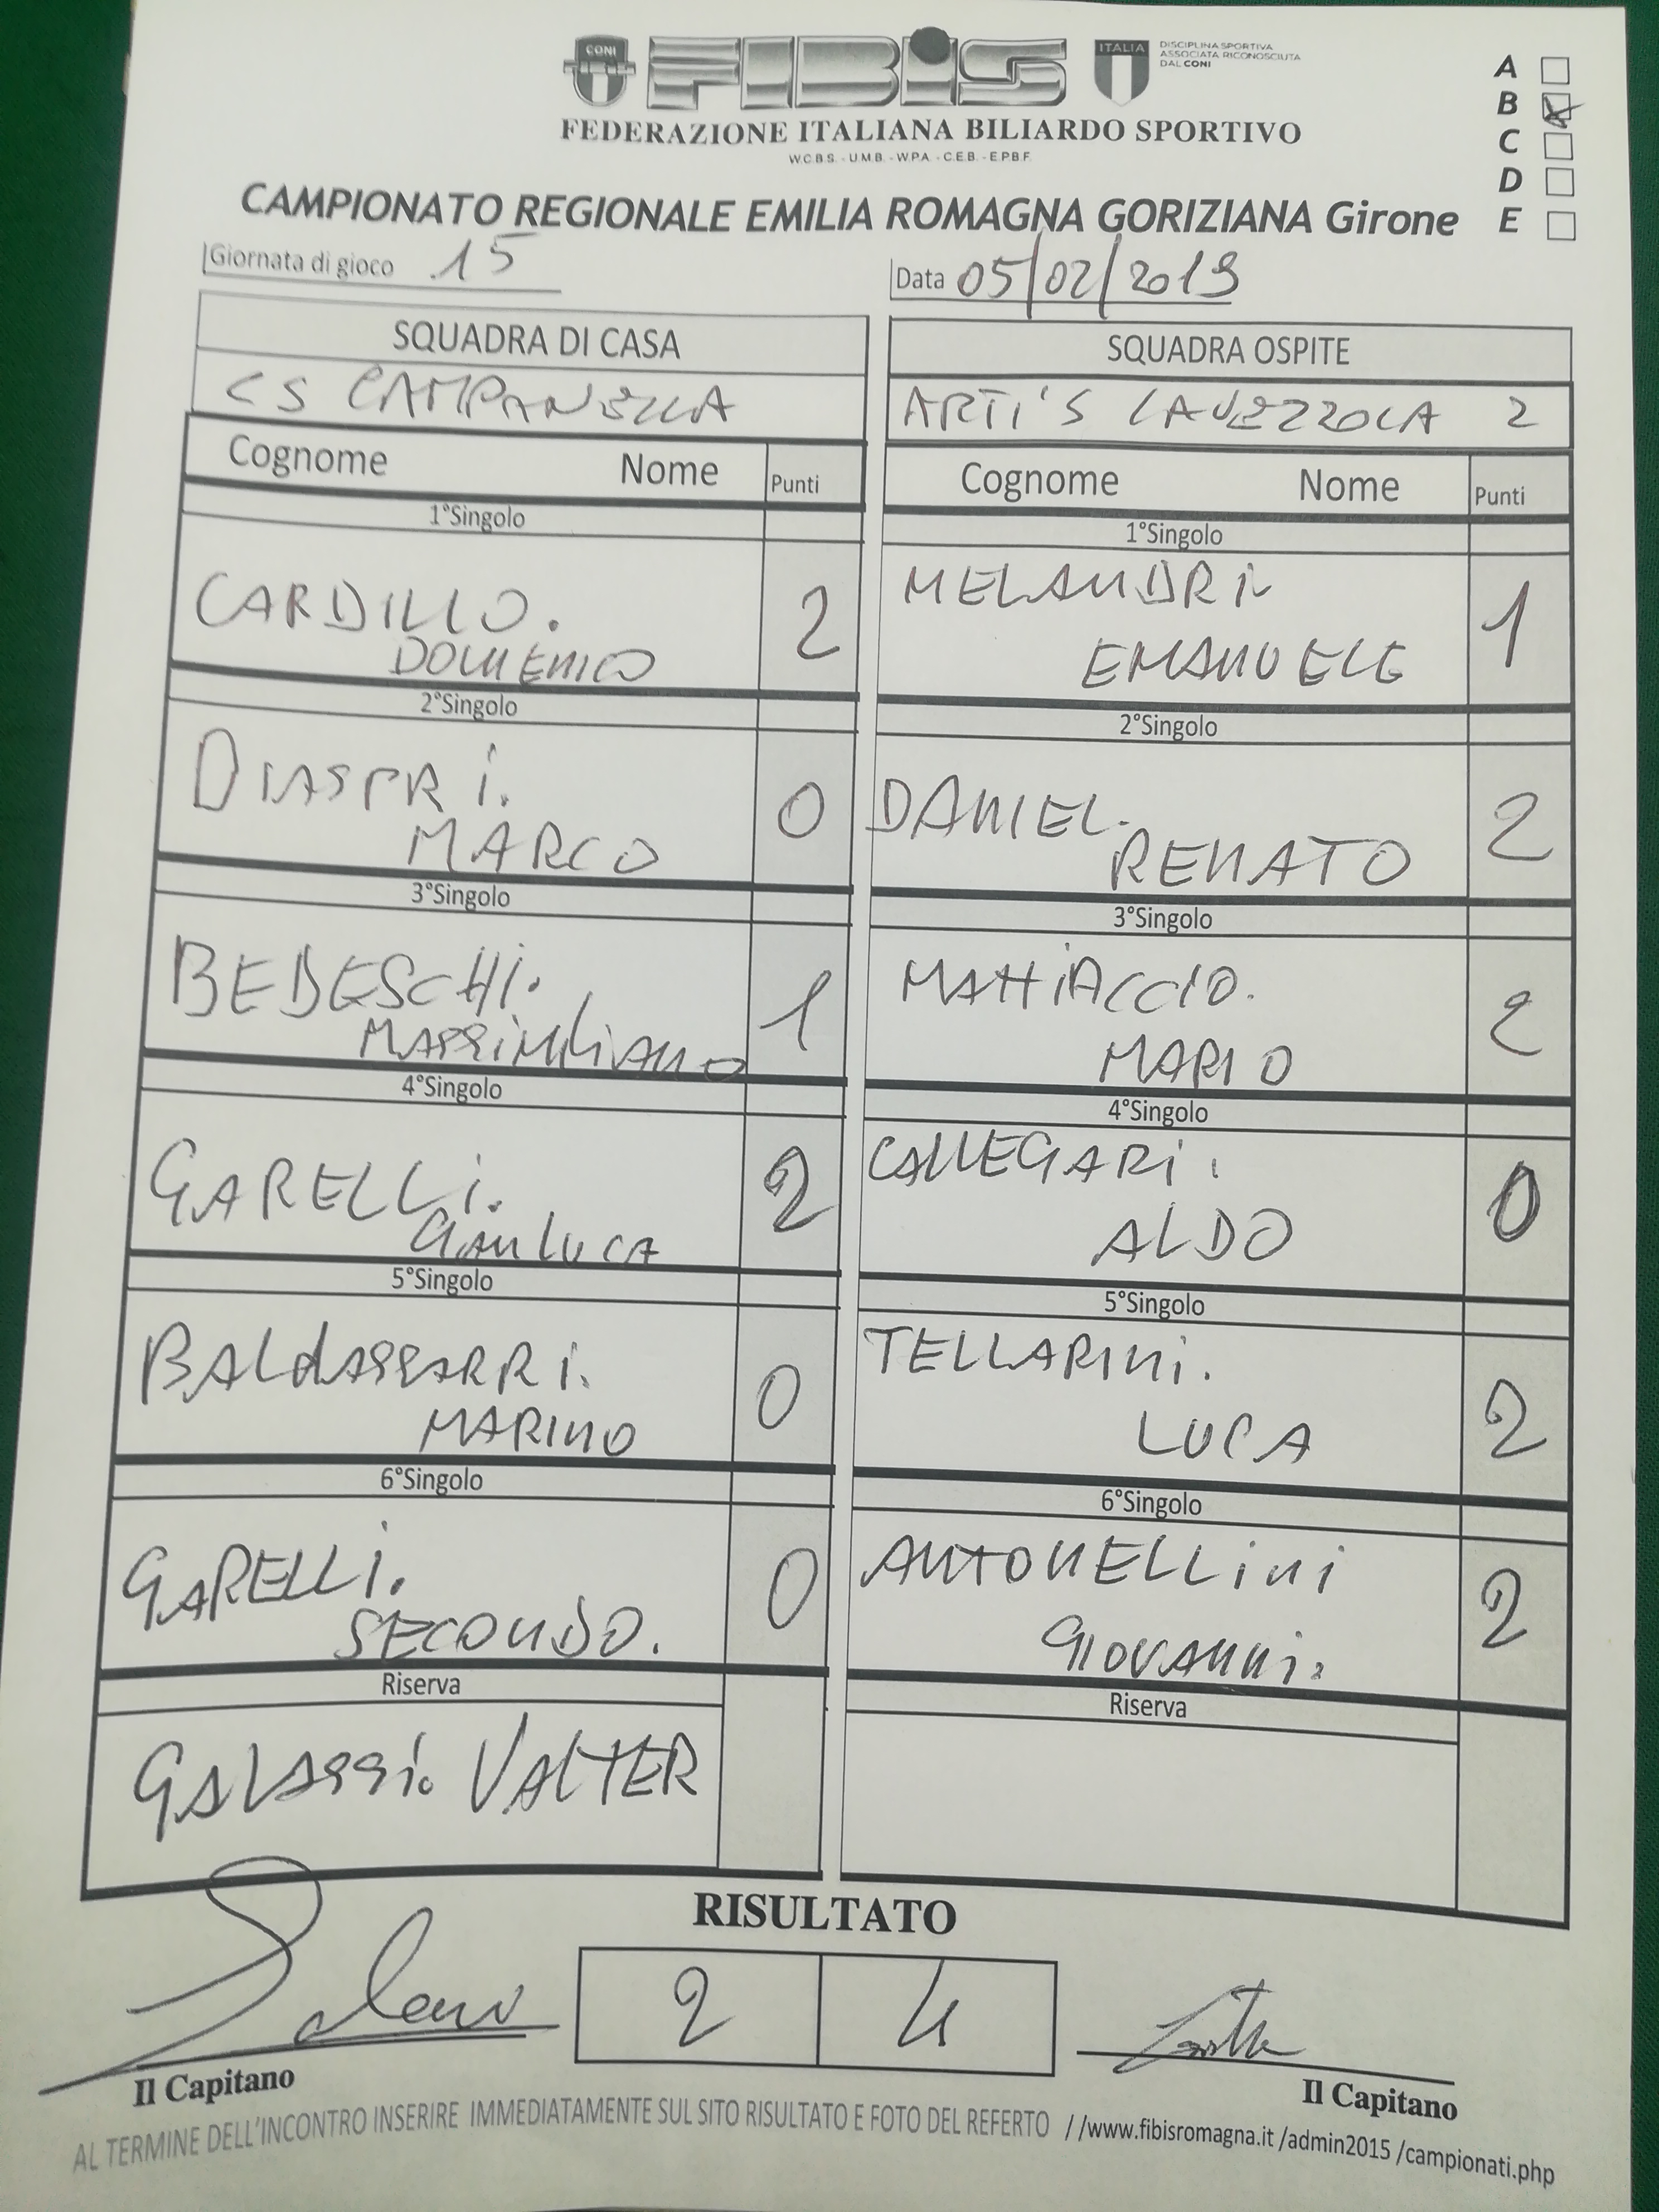 CONI
FIBiS
ITALIA
DISCIPLINA SPORTIVA
ASSOCIATA RICONOSCIUTA
DAL CONI
FEDERAZIONE ITALIANA BILIARDO SPORTIVO
W.C.B.S. - U.M.B. - W.P.A. - C.E.B. - E.P.B.F.
A
B X
C
D
E
CAMPIONATO REGIONALE EMILIA ROMAGNA GORIZIANA Girone
Giornata di gioco 15
Data 05/02/2019
SQUADRA DI CASA
SQUADRA OSPITE
CS CAMPANELLA
ARTI'S LAVEZZOLA 2
Cognome Nome Punti
Cognome Nome Punti
1°Singolo
1°Singolo
CARDILLO.
DOMENICO
2
MELANDRI
EMANUELE
1
2°Singolo
2°Singolo
DIASPRI.
MARCO
0
DANIEL.
RENATO
2
3°Singolo
3°Singolo
BEDESCHI.
MASSIMILIANO
1
MATTIACCIO.
MARIO
2
4°Singolo
4°Singolo
GARELLI.
GIANLUCA
2
CALLEGARI.
ALDO
0
5°Singolo
5°Singolo
BALDASSARRI.
MARINO
0
TELLARINI.
LUCA
2
6°Singolo
6°Singolo
GARELLI.
SECONDO.
0
ANTONELLINI
GIOVANNI.
2
Riserva
Riserva
GALASSI. VALTER
RISULTATO
2 4
Il Capitano
Il Capitano
AL TERMINE DELL'INCONTRO INSERIRE IMMEDIATAMENTE SUL SITO RISULTATO E FOTO DEL REFERTO //www.fibisromagna.it /admin2015 /campionati.php